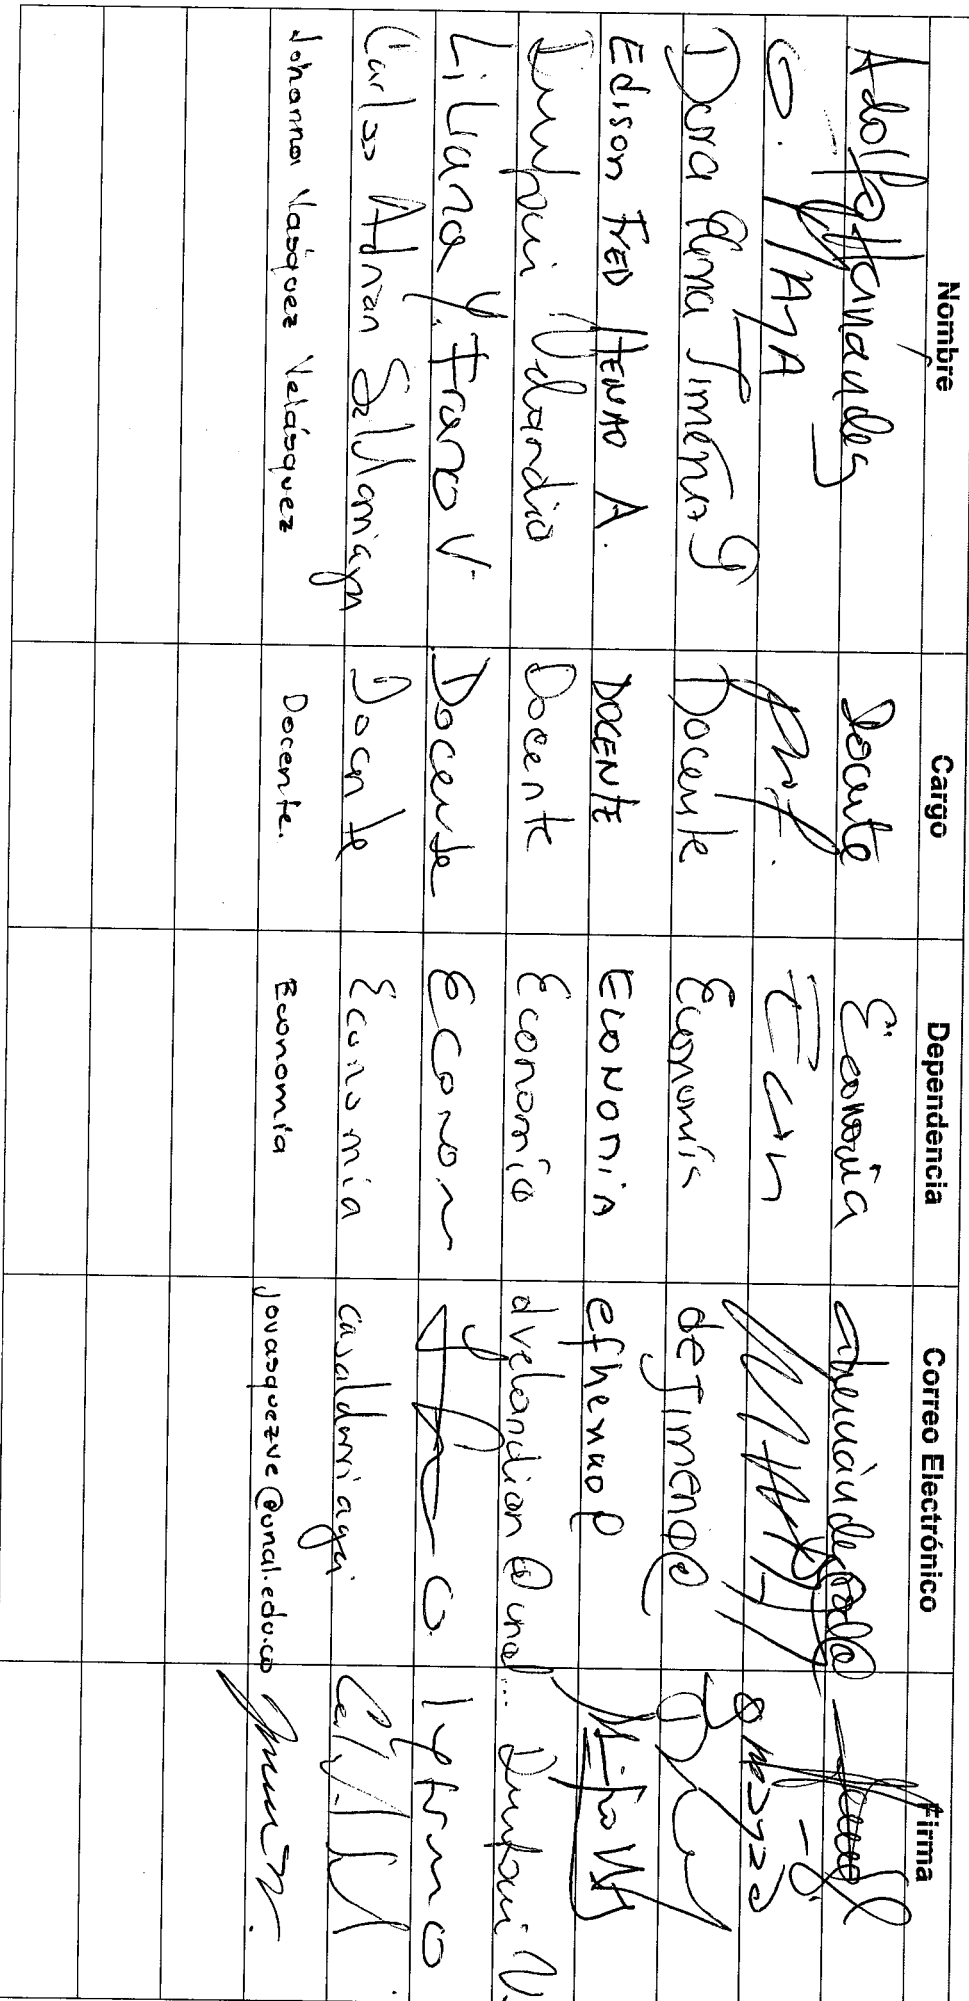 Nombre Cargo Dependencia Correo Electrónico Firma
Adolfo Hernandez Docente Economía
G. MAYA Prof. Econ
Dora Alma Jimena G Docente Economía dejimeno@
Edison FRED HENAO A. DOCENTE ECONOMIA efhenao@
Docente Economía dvelandian@unal...
Liliana Y. Franco V. Docente Econom lyfranco
Carlos Adrian Saldarriaga Docente Economia casaldarriaga
Johanna Vasquez Velásquez Docente. Economía jovasquezve@unal.edu.co